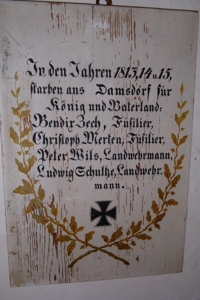 In den Jahren 1813,14 u 15,
starben aus Damsdorf für
König und Vaterland:
Bendix Zech, Füsilier,
Christoph Merten, Füsilier,
Peter Wils, Landwehrmann,
Ludwig Schultze, Landwehr.
mann.